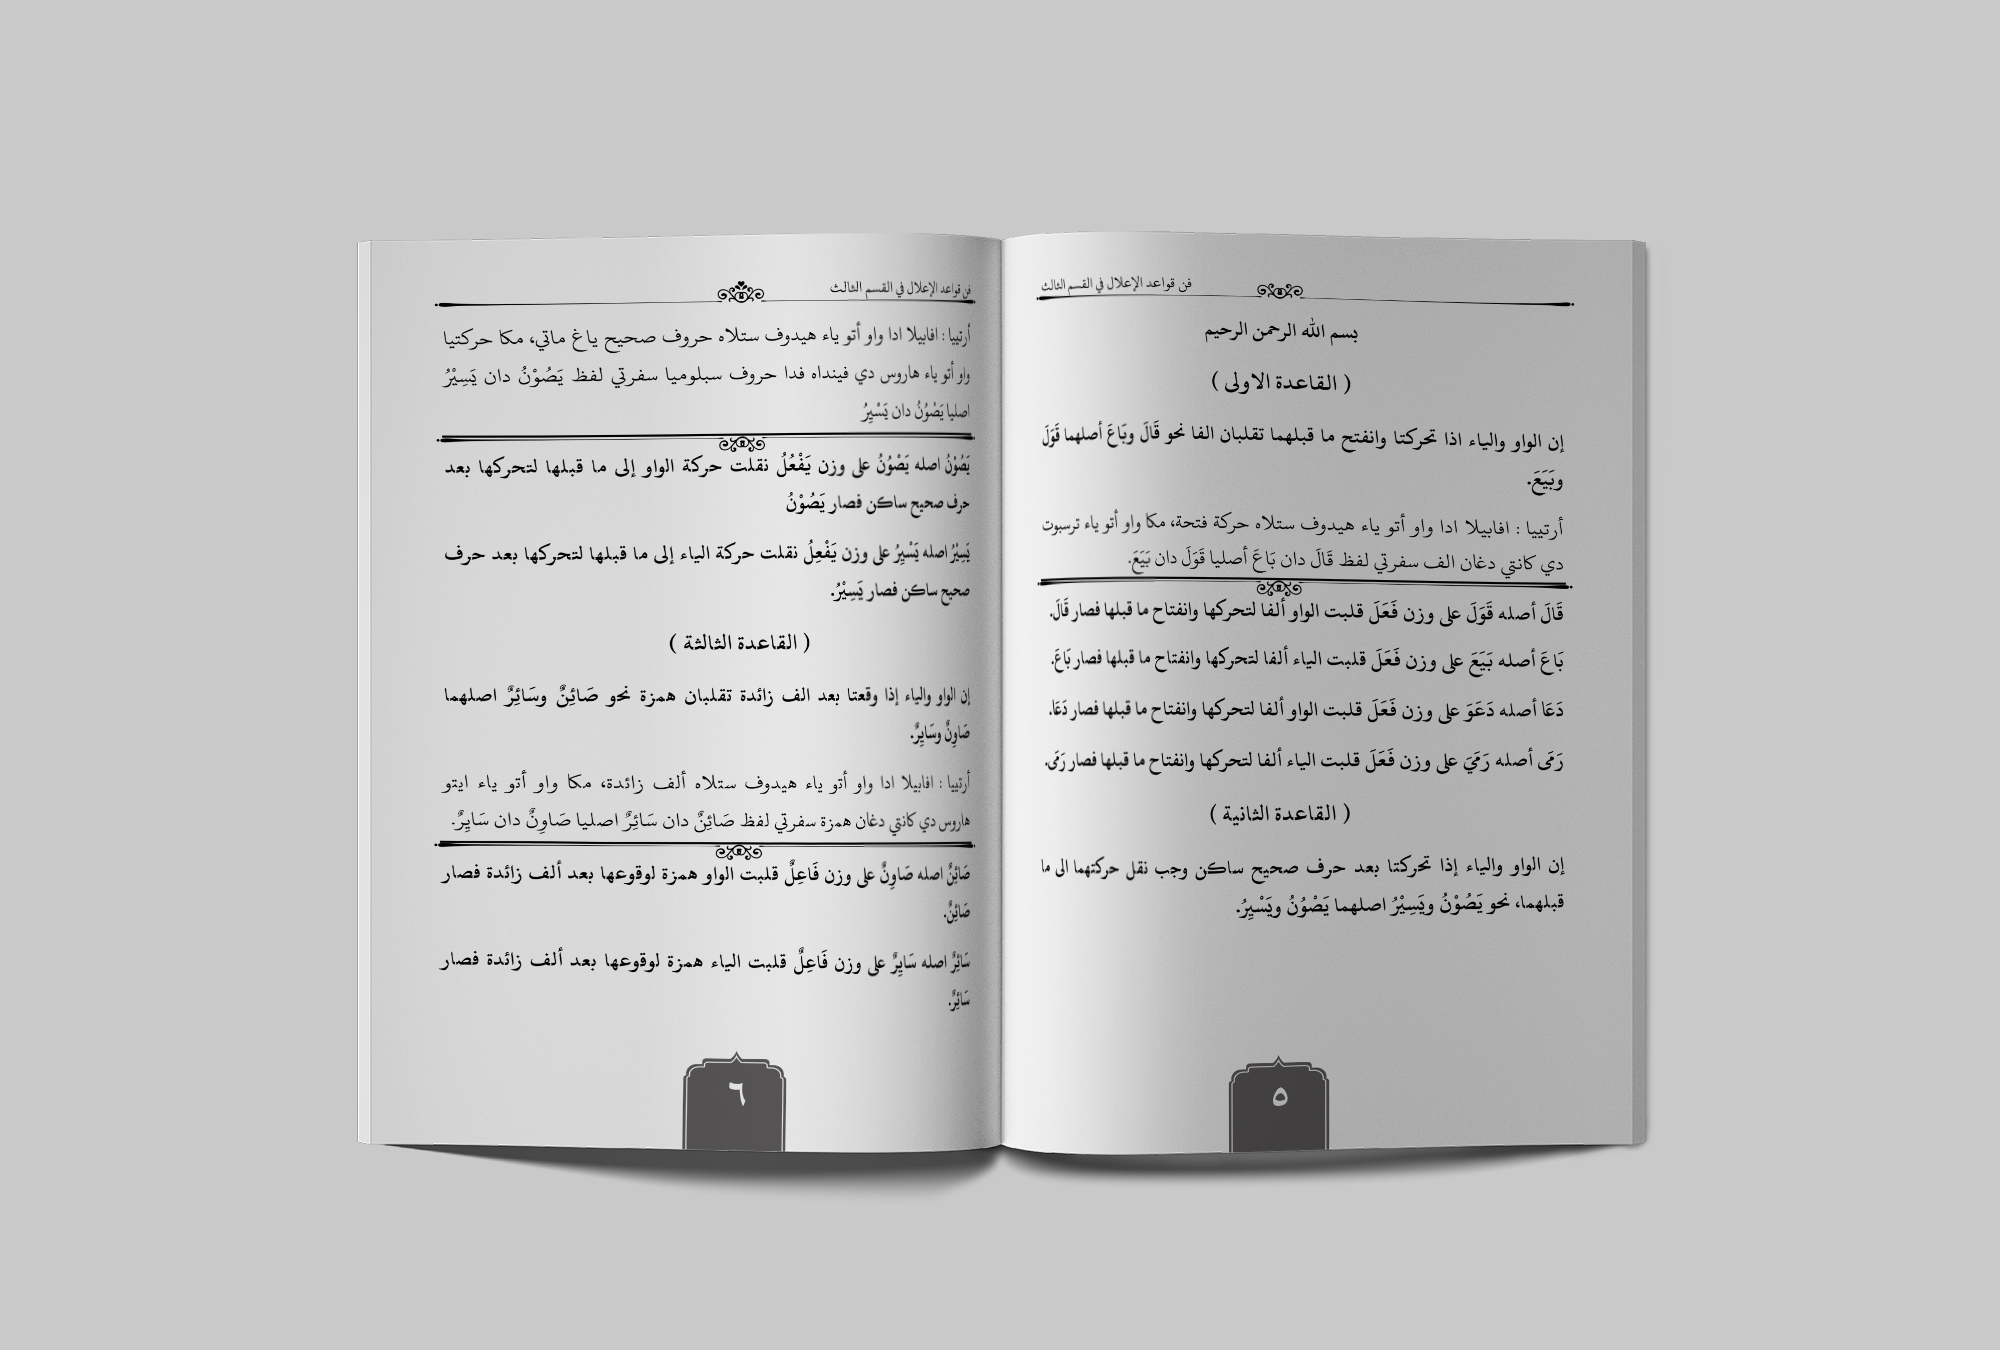 فن قواعد الإعلال في القسم الثالث
بسم الله الرحمن الرحيم
( القاعدة الاولى )
إن الواو والياء اذا تحركتا وانفتح ما قبلهما تقلبان الفا نحو قَالَ وبَاعَ أصلهما قَوَلَ
وبَيَعَ.
أرتييا : افابيلا ادا واو أتو ياء هيدوف ستلاه حركة فتحة، مكا واو أتو ياء ترسبوت
دي كانتي دغان الف سفرتي لفظ قَالَ دان بَاعَ أصليا قَوَلَ دان بَيَعَ.
قَالَ أصله قَوَلَ على وزن فَعَلَ قلبت الواو ألفا لتحركها وانفتاح ما قبلها فصار قَالَ.
بَاعَ أصله بَيَعَ على وزن فَعَلَ قلبت الياء ألفا لتحركها وانفتاح ما قبلها فصار بَاعَ.
دَعَا أصله دَعَوَ على وزن فَعَلَ قلبت الواو ألفا لتحركها وانفتاح ما قبلها فصار دَعَا.
رَمَى أصله رَمَيَ على وزن فَعَلَ قلبت الياء ألفا لتحركها وانفتاح ما قبلها فصار رَمَى.
( القاعدة الثانية )
إن الواو والياء إذا تحركتا بعد حرف صحيح ساكن وجب نقل حركتهما الى ما
قبلهما، نحو يَصُوْنُ ويَسِيْرُ اصلهما يَصْوُنُ ويَسْيِرُ.
٥
فن قواعد الإعلال في القسم الثالث
أرتييا : افابيلا ادا واو أتو ياء هيدوف ستلاه حروف صحيح ياغ ماتي، مكا حركتيا
واو أتو ياء هاروس دي فينداه فدا حروف سبلوميا سفرتي لفظ يَصُوْنُ دان يَسِيْرُ
اصليا يَصْوُنُ دان يَسْيِرُ
يَصُوْنُ اصله يَصْوُنُ على وزن يَفْعُلُ نقلت حركة الواو إلى ما قبلها لتحركها بعد
حرف صحيح ساكن فصار يَصُوْنُ
يَسِيْرُ اصله يَسْيِرُ على وزن يَفْعِلُ نقلت حركة الياء إلى ما قبلها لتحركها بعد حرف
صحيح ساكن فصار يَسِيْرُ.
( القاعدة الثالثة )
إن الواو والياء إذا وقعتا بعد الف زائدة تقلبان همزة نحو صَائِنٌ وسَائِرٌ اصلهما
صَاوِنٌ وسَايِرٌ.
أرتييا : افابيلا ادا واو أتو ياء هيدوف ستلاه ألف زائدة، مكا واو أتو ياء ايتو
هاروس دي كانتي دغان همزة سفرتي لفظ صَائِنٌ دان سَائِرٌ اصليا صَاوِنٌ دان سَايِرٌ.
صَائِنٌ اصله صَاوِنٌ على وزن فَاعِلٌ قلبت الواو همزة لوقوعها بعد ألف زائدة فصار
صَائِنٌ.
سَائِرٌ اصله سَايِرٌ على وزن فَاعِلٌ قلبت الياء همزة لوقوعها بعد ألف زائدة فصار
سَائِرٌ.
٦